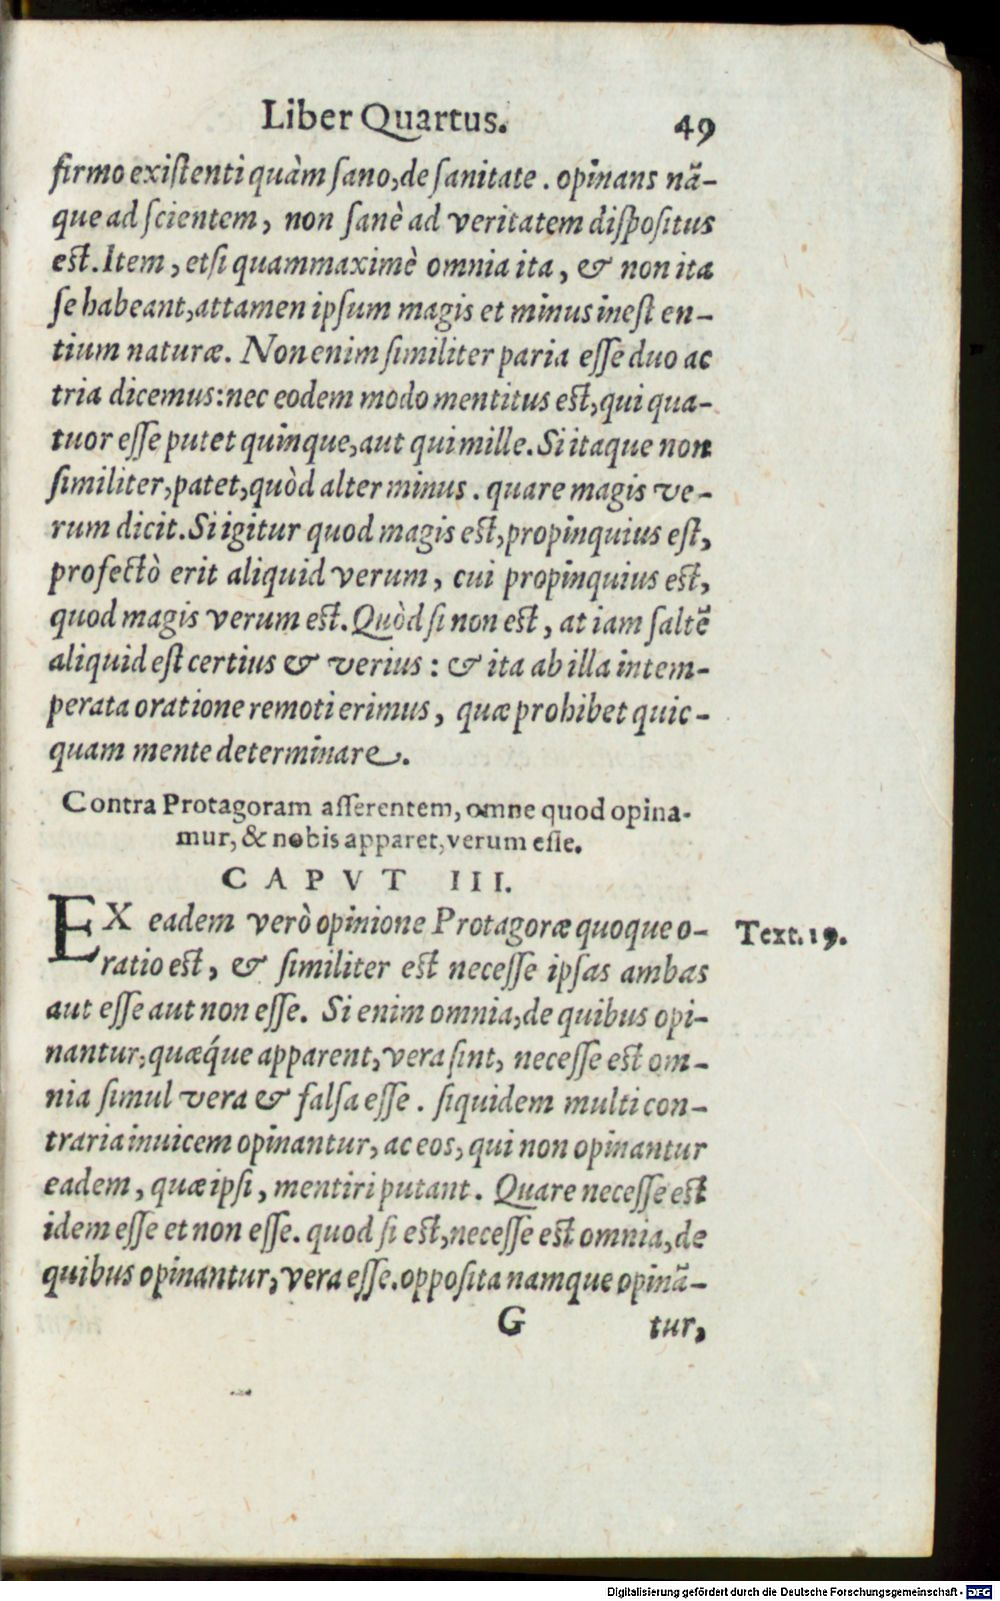 Liber Quartus. 49
firmo existenti quàm sano, de sanitate. opinans nã-
que ad scientem, non sanè ad veritatem dispositus
est. Item, etsi quammaximè omnia ita, & non ita
se habeant, attamen ipsum magis et minus inest en-
tium naturæ. Non enim similiter paria esse duo ac
tria dicemus: nec eodem modo mentitus est, qui qua-
tuor esse putet quinque, aut qui mille. Si itaque non
similiter, patet, quòd alter minus. quare magis ve-
rum dicit. Si igitur quod magis est, propinquius est,
profectò erit aliquid verum, cui propinquius est,
quod magis verum est. Quòd si non est, at iam saltẽ
aliquid est certius & verius: & ita ab illa intem-
perata oratione remoti erimus, quæ prohibet quic-
quam mente determinare.
Contra Protagoram asserentem, omne quod opina-
mur, & nobis apparet, verum esse.
CAPVT III.
EX eadem verò opinione Protagoræ quoque o- Text. 19.
ratio est, & similiter est necesse ipsas ambas
aut esse aut non esse. Si enim omnia, de quibus opi-
nantur, quæq́ue apparent, vera sint, necesse est om-
nia simul vera & falsa esse. siquidem multi con-
traria inuicem opinantur, ac eos, qui non opinantur
eadem, quæ ipsi, mentiri putant. Quare necesse est
idem esse et non esse. quod si est, necesse est omnia, de
quibus opinantur, vera esse. opposita namque opinã-
G tur,
Digitalisierung gefördert durch die Deutsche Forschungsgemeinschaft - DFG